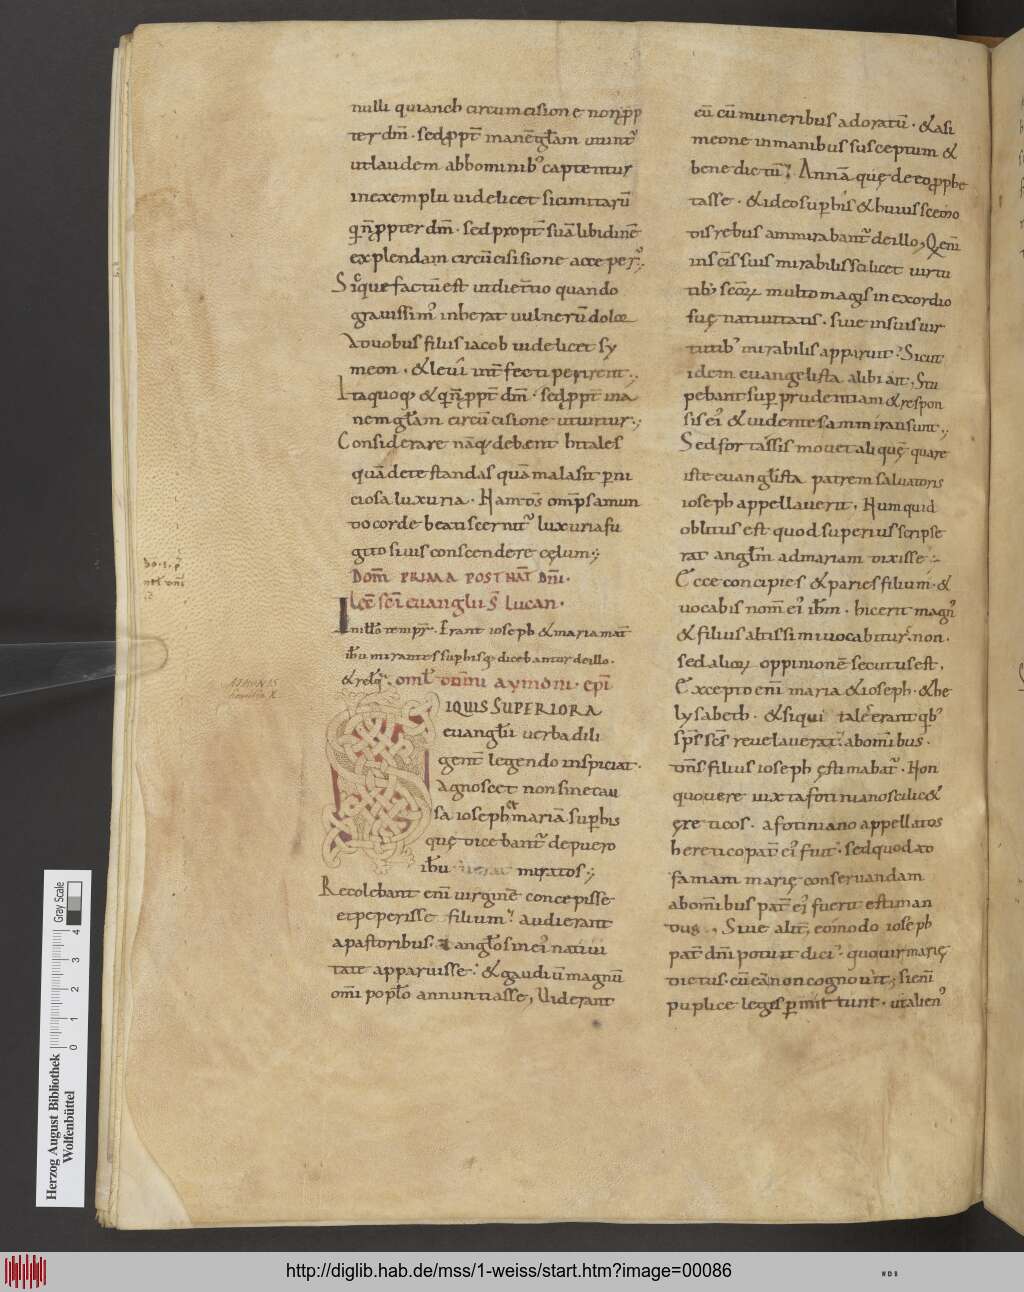 nulli quia nec circumcisione non pp
ter dm̄. sed ꝓpt̄ manē gl̄am utunt᷑
ut laudem ab hominib; captentur
in exemplu uidelicet sicimitarū
q̄ n̄ ꝓpter dm̄. sed propt̄ suā libidinē
explendam circūcisisione accepeR̄;
Sicque factū est ut dietertio quando
grauissim᷒ inherat uulnerū dolor
A duobus filiis iacob uidelicet sy
meon. & leui int̄fecti perirent;
Itaquoq; & q̄ n̄ ꝓpt̄ dm̄. sed ꝓpt̄ ina
nem gl̄am circūcisione utuntur;
Considerare nāq; debent hitales
quā detestandas quā mala sit p̄ni
ciosa luxuria. Nam tōs om̄ps a mun
do corde beatus cernit᷑ luxuria fu
gito siuis conscendere cęlum;
Dom̄ PRIMA POST NAT̄ Dm̄.
Lec̄ sc̄i euanglii s̄ Lucan.
In illo tempr̄. Erant ioseph & maria mat̄
ih̄u mirantes sup his q; dicebantur de illo.
& rel̄q. oml̄ domni aymoni. ep̄i
SIQUIS SUPERIORA
euangl̄ii uerba dili
gent̄ legendo inspiciat.
agnoscet non sine cau
sa ioseph & mariā sup his
quę dicebant᷑ de puero
ih̄u miratos;
Recolebant eni uirginē concepisse
et peperisse filium. audierant
a pastoribus. angl̄os in ei᷒ natiui
tate apparuisse. & gaudiū magnū
om̄i popl̄o annuntiasse, Uiderant
eū cū muneribus adoratū. & a si
meone in manibus susceptum &
benedictū. Annā quę de eo ꝓphe
tasse. & ideo sup his & huiuscemo
dis rebus ammirabant᷑ de illo, Qeni
in sc̄is suis mirabilis scilicet uirtu
tib; sc̄oꝝ multo magis in exordio
suę natiuitatis. siue in suis uir
tutib; mirabilis apparuit. Sicut
idem euangelista alibi ait, Stu
pebant sup prudentiam & respon
sis ei᷒ & uidentes ammirati sunt,
Sed fortassis mouet aliquę quare
iste euangl̄ista patrem saluatoris
ioseph appellauerit, Numquid
oblitus est quod superius scripse
rat angl̄m ad mariam dixisse;
Ecce concipies & paries filium. &
uocabis nom̄ ei᷒ ih̄m. hic erit magn᷒
& filius altissimi uocabitur. non.
sed alioꝝ oppinionē secutus est,
Excepto eni maria & ioseph. & he
lysabeth. & siqui tales erant qb᷒
sp̄s sc̄s reuelauerat. ab omib;us.
dn̄s filius ioseph ęstimabat᷑. Non
quo uere iuxta fotinianos scilic&
ęreticos. a fotiniano appellatos
heretico pat̄ ei᷒ fuit. sed quod ad
famam marię conseruandam
ab omibus pat̄ ei᷒ fuerit estiman
dus. Siue alit̄, eo modo ioseph
pat̄ dn̄i potuit dici. quo uir marię
dictus. cū eā non cognouit; Si eni
puplice leges p̄mittunt. ut alien᷒
ATHINIS
Homilia X
Herzog August Bibliothek
Wolfenbüttel
Gray Scale
0 1 2 3 4
http://diglib.hab.de/mss/1-weiss/start.htm?image=00086